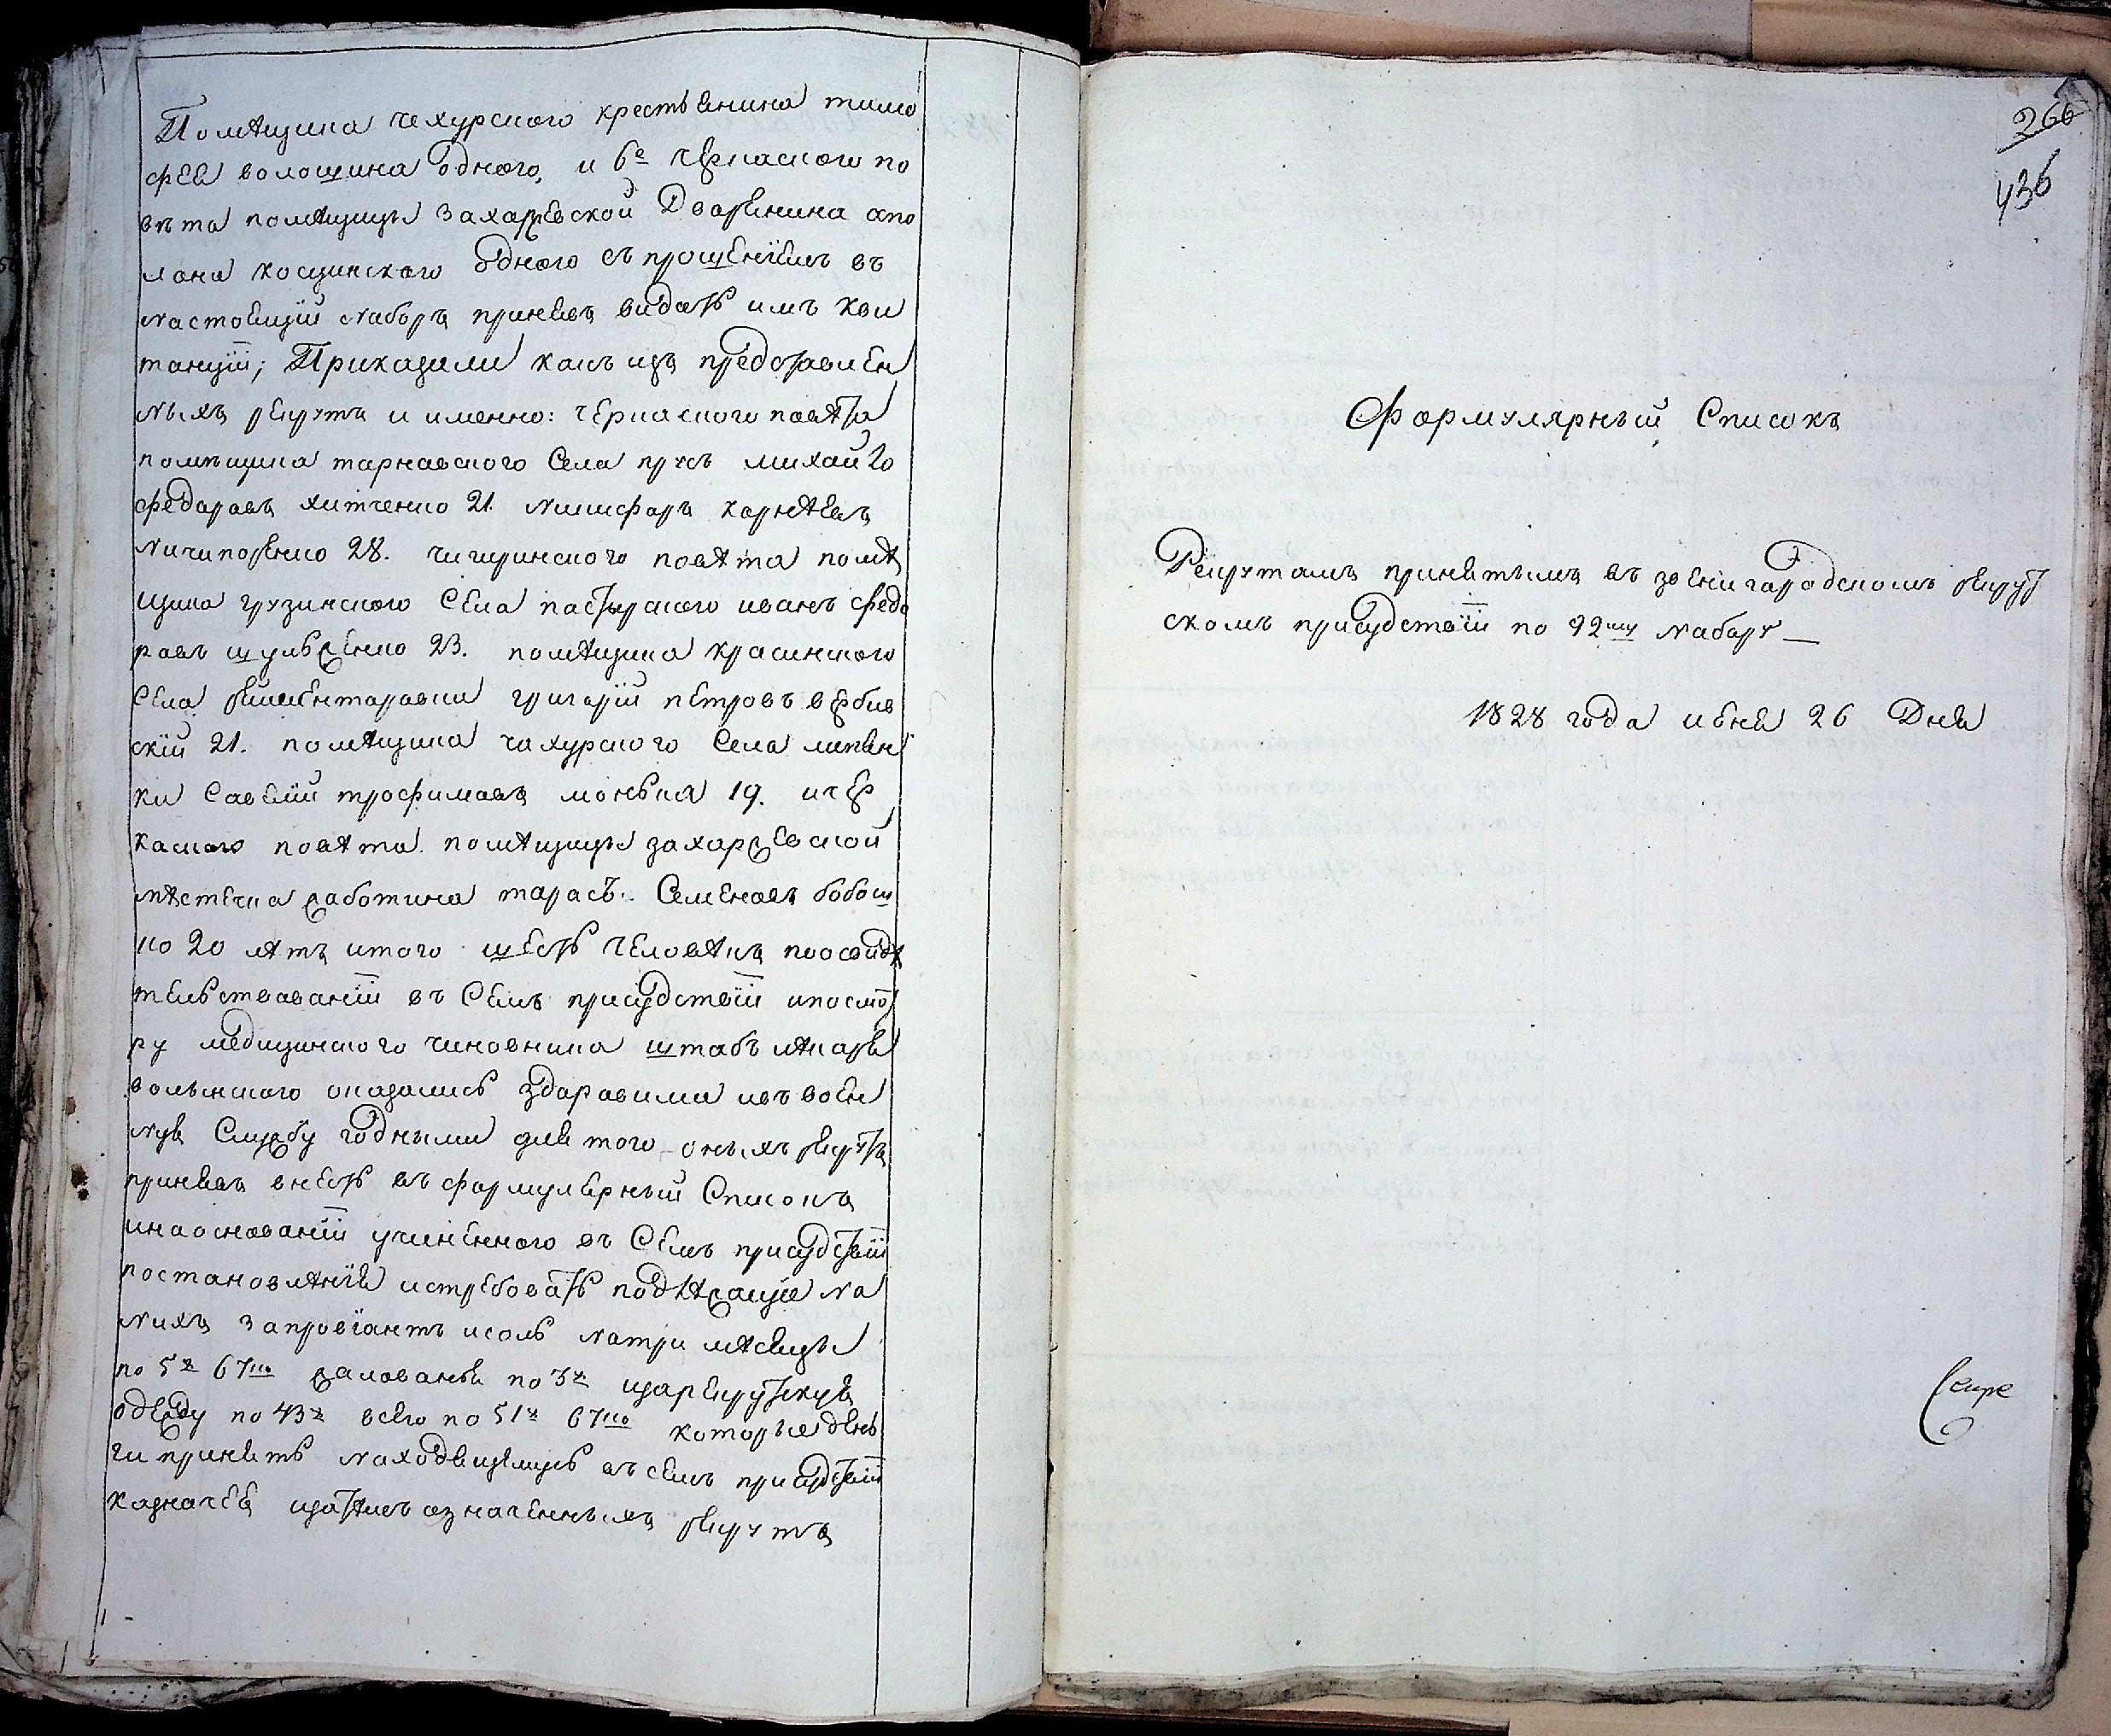 Помѣщика чехурского крестьянина тимо
фея волощина одного, и 6е черкаского по
вѣта помѣщицы Захаржевской Дворянина апо
лона косцинского одного съ прошениемъ въ
настоящій наборъ принявъ видать имъ кви
танціи; Приказали какъ изъ представлен
ныхъ рекрутъ и именно: черкаского повѣта
помѣщика тарнавского села прусъ михайло
федоровъ хитченко 21. никифоръ корнѣевъ
ничипоренко 28. чигринского повѣта помѣ
щика грузинского села пастырского иванъ федо
ровъ шульженко 23. помѣщика красинского
села рейментаровки григорій петровъ вербив
скій 21. помѣщика чахурского села липян
ки Савелій трофимовъ монька 19. и чер
каского повѣта помѣщицы захаржевской
мѣстечка жаботина тарасъ Семеновъ бобош
ко 20 лѣтъ итого шесть человѣкъ по освидѣ
тельствованіи въ семъ присудствіи и посмот
ру медицинского чиновника штабъ лѣкаря
волынского оказались здоровими и въ воен
нуя службу годными для того оныхъ рекрутъ
принявъ внесть въ формулярный Списокъ
и на основаніи учиненного въ семъ присудствіи
постановлѣнія истребовать подлѣжащие на
нихъ за провіантъ и соль на три мѣсяцы
по 5р 67ко жалованя по 3р и за рекрутскуя
одежду по 43р всего по 51р 67ко которые день
ги принять находящемусь въ семъ присудствіи
казначея и затѣмъ означенныхъ рекрутъ
266
436
Формулярный Списокъ
Рекрутамъ принятымъ въ звенигородскомъ рекрут
скомъ присудствіи по 92му набору —
1828 года июня 26 Дня